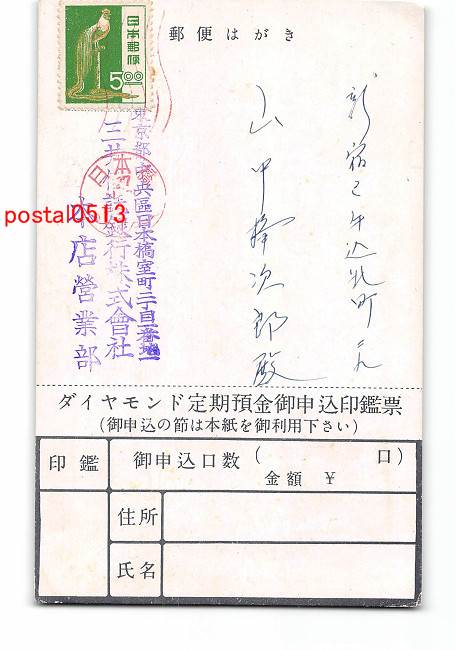 郵便はがき
日本郵便
5.00
新宿区牛込北町
山甲
次郎殿
日本橋
東京都中央區日本橋室町二丁目一番地一
三井信託銀行株式會社
本店營業部
postal0513
ダイヤモンド定期預金御申込印鑑票
(御申込の節は本紙を御利用下さい)
印鑑
御申込口数(口)
金額 ¥
住所
氏名